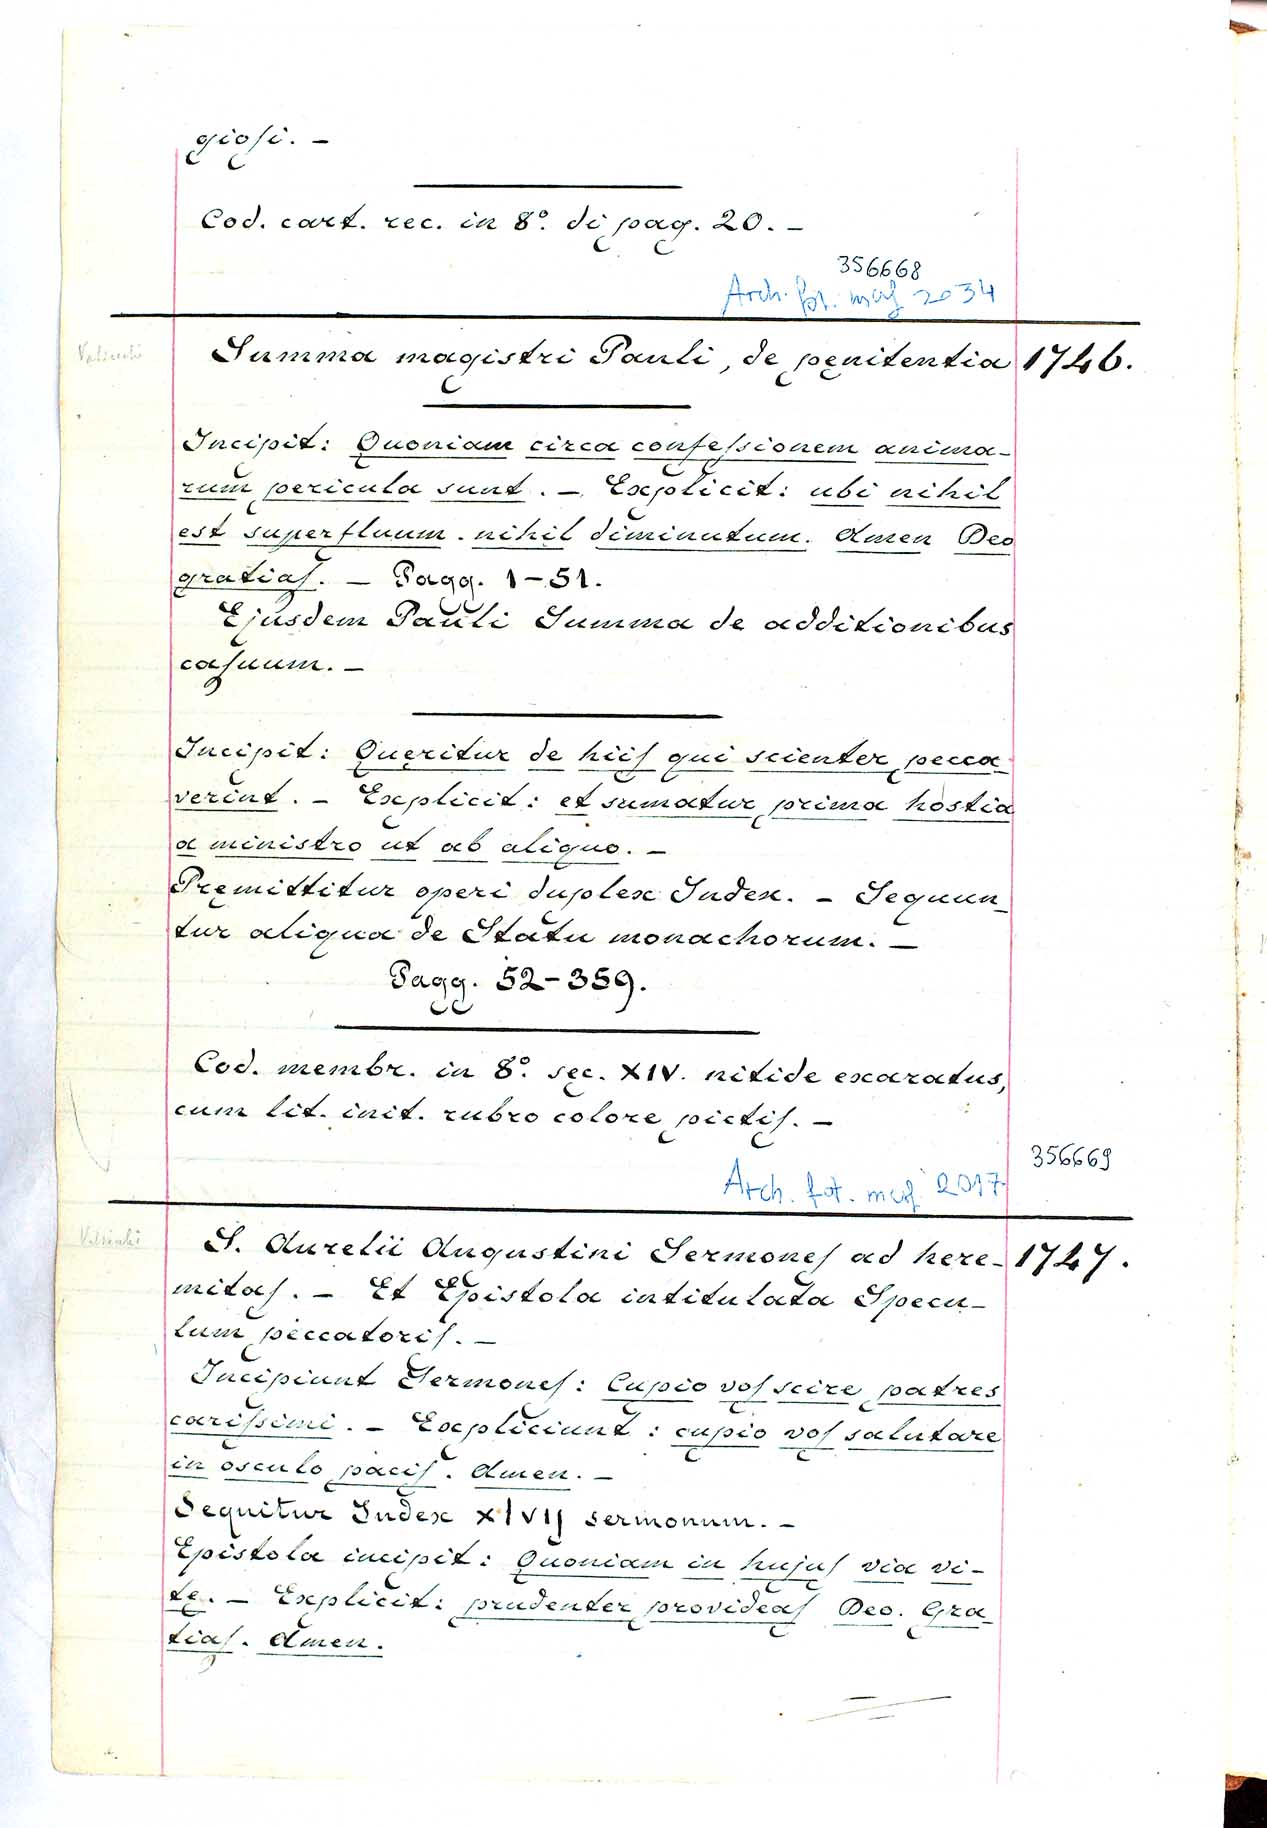 giosi. –
Cod. cart. rec. in 8°. di pag. 20. –
356668
Arch. fot. mcf 2034
Summa magistri Pauli, de penitentia 1746.
Incipit: Quoniam circa confessionem anima-
rum pericula sunt. – Explicit: ubi nihil
est superfluum. nihil diminutum. Amen Deo
gratias. – Pagg. 1-51.
Ejusdem Pauli Summa de additionibus
casuum. –
Incipit: Queritur de hiis qui scienter pecca-
verint. – Explicit: et sumatur prima hostia
a ministro ut ab aliquo. –
Premittitur operi duplex Index. – Sequun-
tur aliqua de Statu monachorum. –
Pagg. 52-359.
Cod. membr. in 8°. sec. XIV. nitide exaratus,
cum lit. init. rubro colore pictis. –
356669
Arch. fot. mcf. 2017
S. Aurelii Augustini Sermones ad here- 1747.
mitas. – Et Epistola intitulata Specu-
lum peccatoris. –
Incipiunt Sermones: Cupio vos scire patres
carissimi. – Expliciunt: cupio vos salutare
in osculo pacis. Amen. –
Sequitur Index xlvij sermonum. –
Epistola incipit: Quoniam in hujus via vi-
te. – Explicit: prudenter provideas Deo. Gra-
tias. Amen.